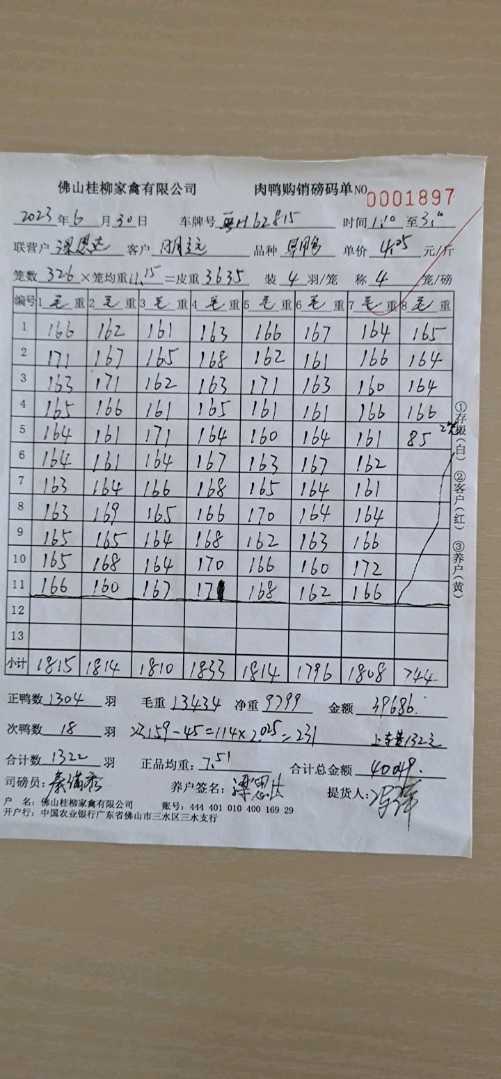 佛山桂柳家禽有限公司 肉鸭购销磅码单 NO 0001897
2023年6月30日 车牌号 H62815 时间 1:10 至 3:10
联营户 客户 品种 单价 4.25 元/斤
笼数 326 ×笼均重 11.15 =皮重 3635 装 4 羽/笼 称 4 笼/磅
编号 1 毛 重 2 毛 重 3 毛 重 4 毛 重 5 毛 重 6 毛 重 7 毛 重 8 毛 重
1 166 162 161 163 166 167 164 165
2 171 167 165 168 162 161 166 164
3 163 171 162 163 171 163 160 164
4 165 166 161 165 161 161 166 166
5 164 161 171 164 160 164 161 85
6 164 161 164 167 163 167 162
7 163 164 166 168 165 164 161
8 163 169 165 166 170 164 164
9 165 165 164 168 162 163 166
10 165 168 164 170 166 160 172
11 166 160 167 171 168 162 166
12
13
小计 1815 1814 1810 1833 1814 1796 1808 744
①存根(白) ②客户(红) ③养户(黄)
正鸭数 1304 羽 毛重 13434 净重 9799 金额 39686.
次鸭数 18 羽 次159-45=114×2.025=231 132元
合计数 1322 羽 正品均重: 7.51 合计总金额 40049.
司磅员: 养户签名: 提货人:
户 名: 佛山桂柳家禽有限公司 账号: 444 401 010 400 169 29
开户行: 中国农业银行广东省佛山市三水区三水支行